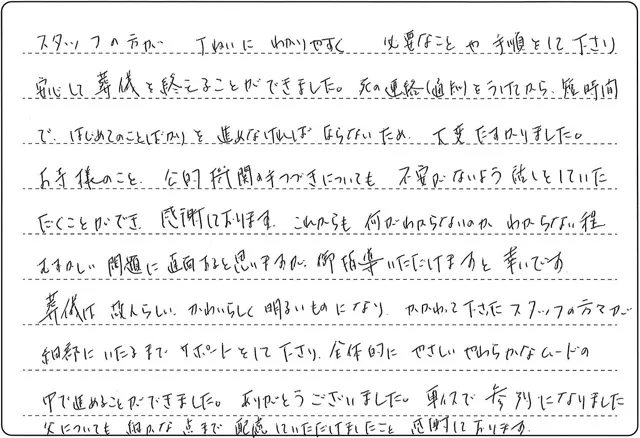 スタッフの方が 丁ねいに わかりやすく 必要なことや手順をして下さり
安心して葬儀を終えることができました。死の連絡(通知)をうけてから、短時間
で、はじめてのことばかりを進めなければならないため、大変たすかりました。
お寺様のこと、公的機関の手つづきについても 不安がないよう話しをしていた
だくことができ、感謝しております。これからも 何がわからないのか わからない程
むずかしい問題に直面すると思いますが、御指導いただけますと幸いです
葬儀は故人らしい、かわいらしく明るいものになり、かかわって下さったスタッフの方々が
細部にいたるまでサポートをして下さり、全体的に やさしい やわらかなムードの
中で進めることができました。ありがとうございました。車イスで参列になりました
父についても細かな点まで配慮していただけましたこと 感謝しております。